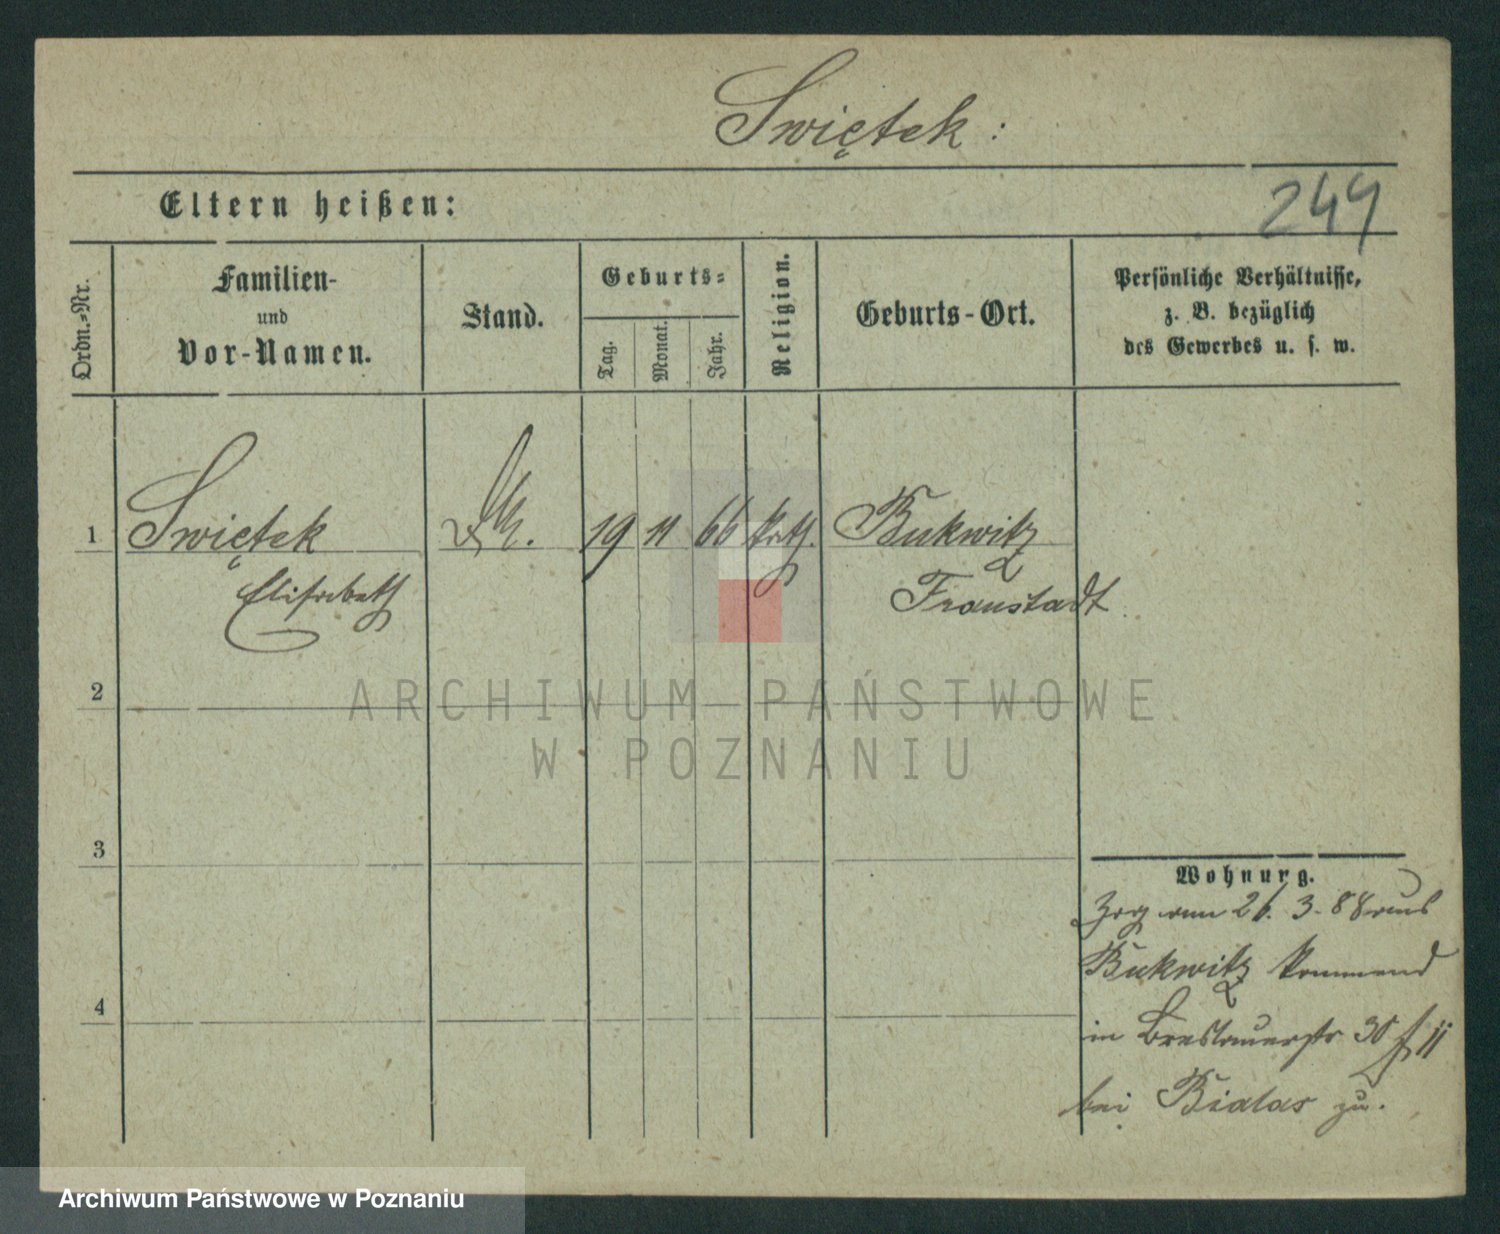 Swiętek:
Eltern heißen:
249
Ordn.-Nr.
Familien-
und
Vor-Namen.
Stand.
Geburts-
Tag.
Monat.
Jahr.
Religion.
Geburts-Ort.
Persönliche Verhältnisse,
z. B. bezüglich
des Gewerbes u. s. w.
1 Swiętek 19 11 66 kath. Bukwitz
Elisabeth Fraustadt
2
ARCHIWUM PAŃSTWOWE
W POZNANIU
3
Wohnung.
Zog am 26. 3. 88 aus
Bukwitz kommend
4
in Breslauerstr 30
bei Bialas zu.
Archiwum Państwowe w Poznaniu